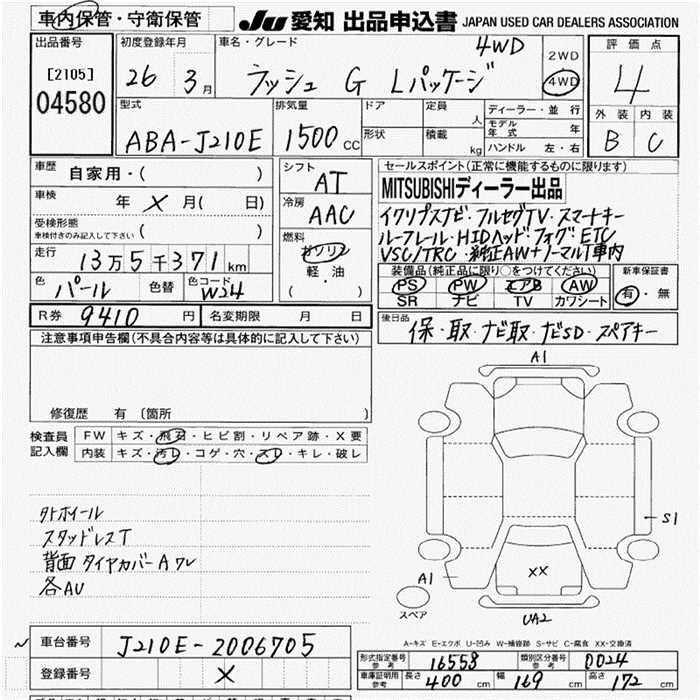 車内保管・守衛保管
JU 愛知 出品申込書 JAPAN USED CAR DEALERS ASSOCIATION
出品番号
[2105]
04580
初度登録年月
26 3月
車名・グレード
4WD
ラッシュ G Lパッケージ
2WD
4WD
評価点
4
外装 内装
B C
型式
ABA-J210E
排気量
1500cc
ドア
形状
定員
人
積載
kg
ディーラー・並行
モデル年式 年
ハンドル 左・右
車歴
自家用・( )
車検
年 × 月( 日)
受検形態
車検付きのみ記入して下さい ( )
走行
13万5千371km
色
パール
色替
色コード
W24
シフト
AT
冷房
AAC
燃料
ガソリン
軽・油
( )
セールスポイント(正常に機能するものに限ります)
MITSUBISHIディーラー出品
イクリプスナビ・フルセグTV・スマートキー
ルーフレール・HIDヘッド・フォグ ETC
VSC/TRC・純正AW+ノーマルT車内
装備品(純正品に限り○をつけてください)
PS PW エアB AW
SR ナビ TV カワシート
新車保証書
有・無
R券 9410円
名変期限 月 日
後日品
保・取・ナビ取・ナビSD・スペアキー
注意事項申告欄(不具合内容等は具体的に記入して下さい)
修復歴 有 〔箇所 〕
検査員
記入欄
FW キズ・飛石・ヒビ割・リペア跡・X要
内装 キズ・汚レ・コゲ・穴・スレ・キレ・破レ
外ホイール
スタッドレスT
背面タイヤカバーAワレ
各AU
A1
S1
A1
XX
UA2
スペア
A-キズ E-エクボ U-凹み W-補修跡 S-サビ C-腐食 XX-交換済
車台番号
J210E-2006705
登録番号
×
形式指定番号
参考
16558
類別区分番号
参考
0024
車庫証明用
参考
長さ 400cm
幅 169cm
高さ 172cm